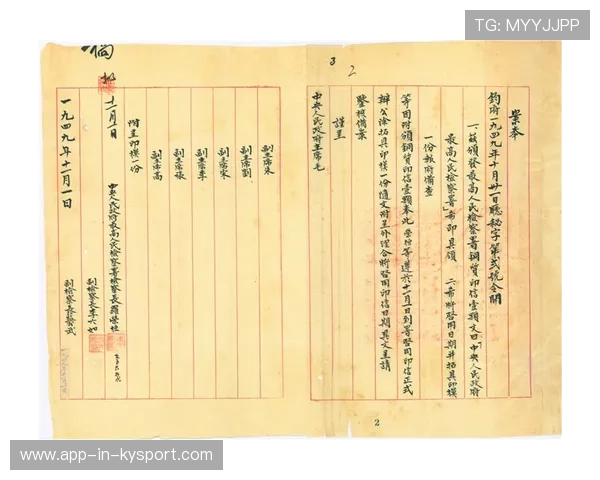 TG: MYYJJPP
3
2
案奉
鈞府一九四九年十月卅一日聽秘字第弍號令開
一、茲頒發最高人民檢察署銅質印信壹顆文曰「中央人民政府
最高人民檢察署」希即具領 二、希將啓用日期并拓具印模
一份報府備查
等因附頒銅質印信壹顆奉此 榮桓等遵於十一月一日到署啓用印信正式
辦公除拓具印模一份隨文附呈外理合將啓用印信日期具文呈請
鑒核備案
謹呈
中央人民政府主席毛
副主席朱
副主席劉
副主席宋
副主席李
副主席張
副主席高
附呈印模一份
中央人民政府最高人民檢察署檢察長羅榮桓
副檢察長李六如
副檢察長藍公武
十一月一日
一九四九年十一月一日
2
www.app-in-kysport.com